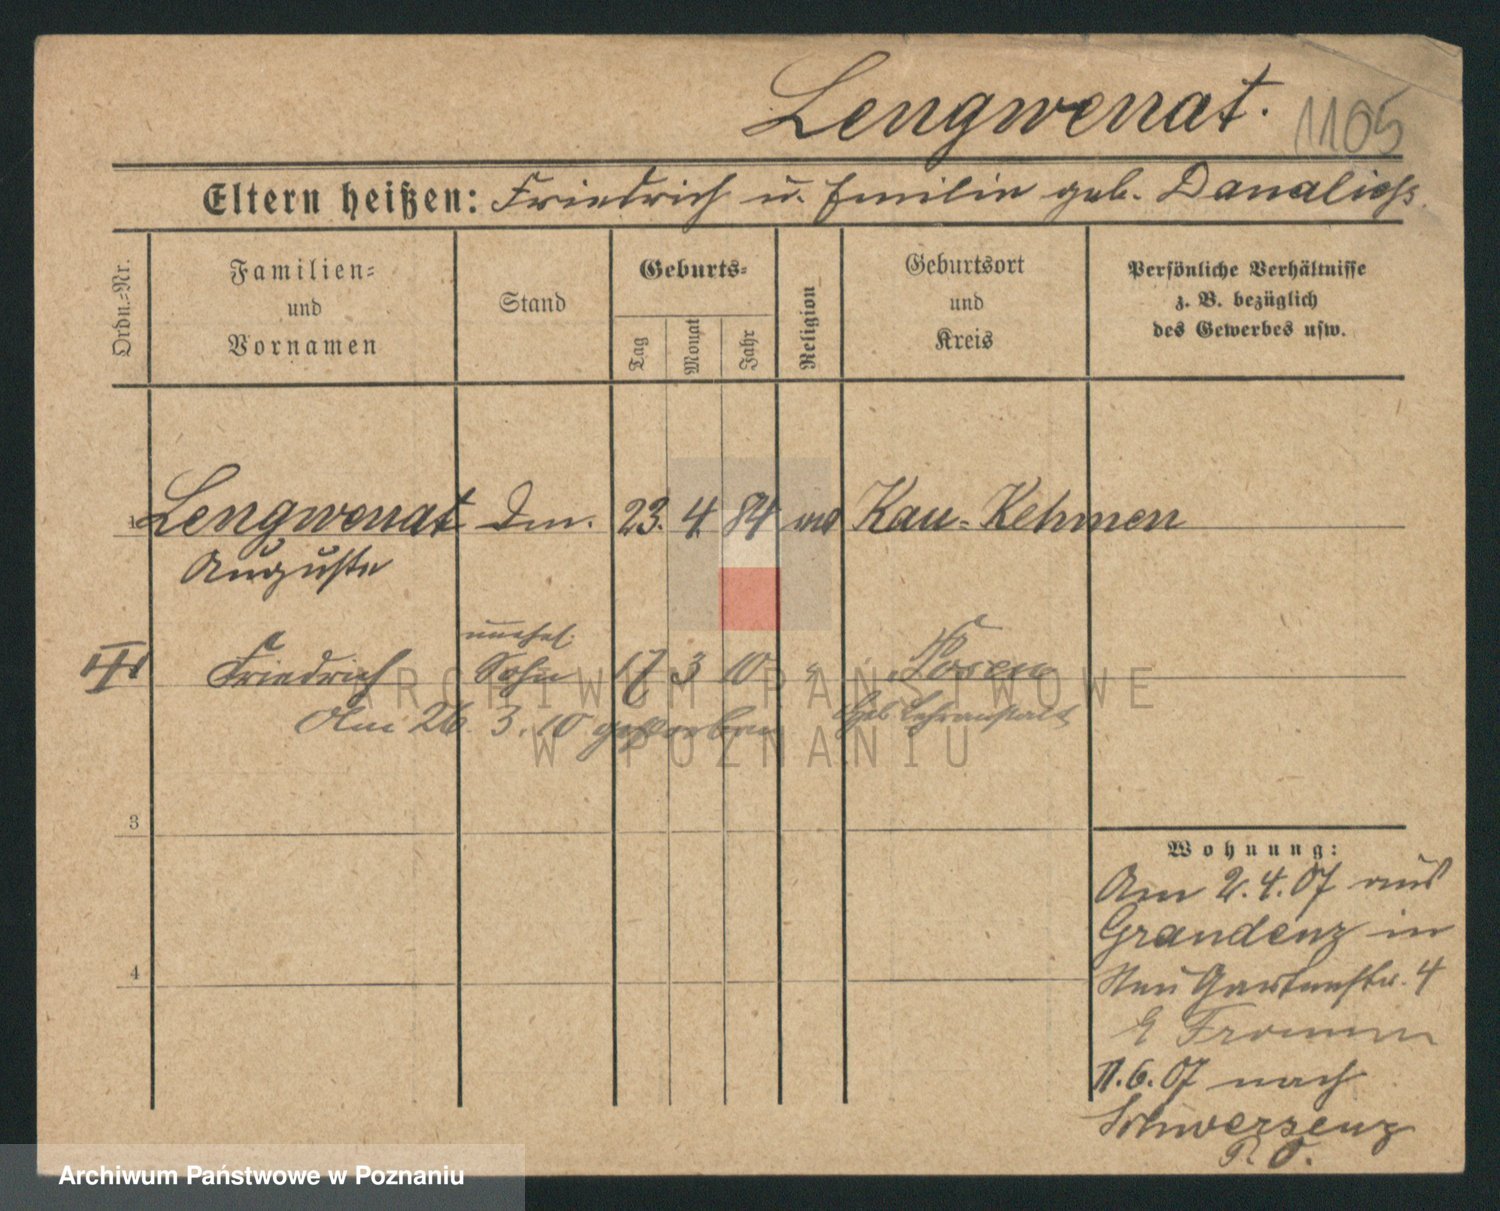 Lengwenat. 1105
Eltern heißen: Friedrich u. Emilie geb. Danalies
Ordn.-Nr.
Familien-
und
Vornamen
Stand
Geburts-
Tag
Monat
Jahr
Religion
Geburtsort
und
Kreis
Persönliche Verhältnisse
z. B. bezüglich
des Gewerbes usw.
1 Lengwenat Dm. 23. 4. 84 ev Kau-Kehmen
Auguste
unehel.
Friedrich Sohn 17 3 10 " Posen
Am 26. 3. 10 gestorben Heb. Lehranstalt
3
4
Wohnung:
Am 2.4.07 aus
Graudenz in
Neu Gartenstr. 4
Fromm
11.6.07 nach
Schwersenz
P. O.
ARCHIWUM PAŃSTWOWE
W POZNANIU
Archiwum Państwowe w Poznaniu